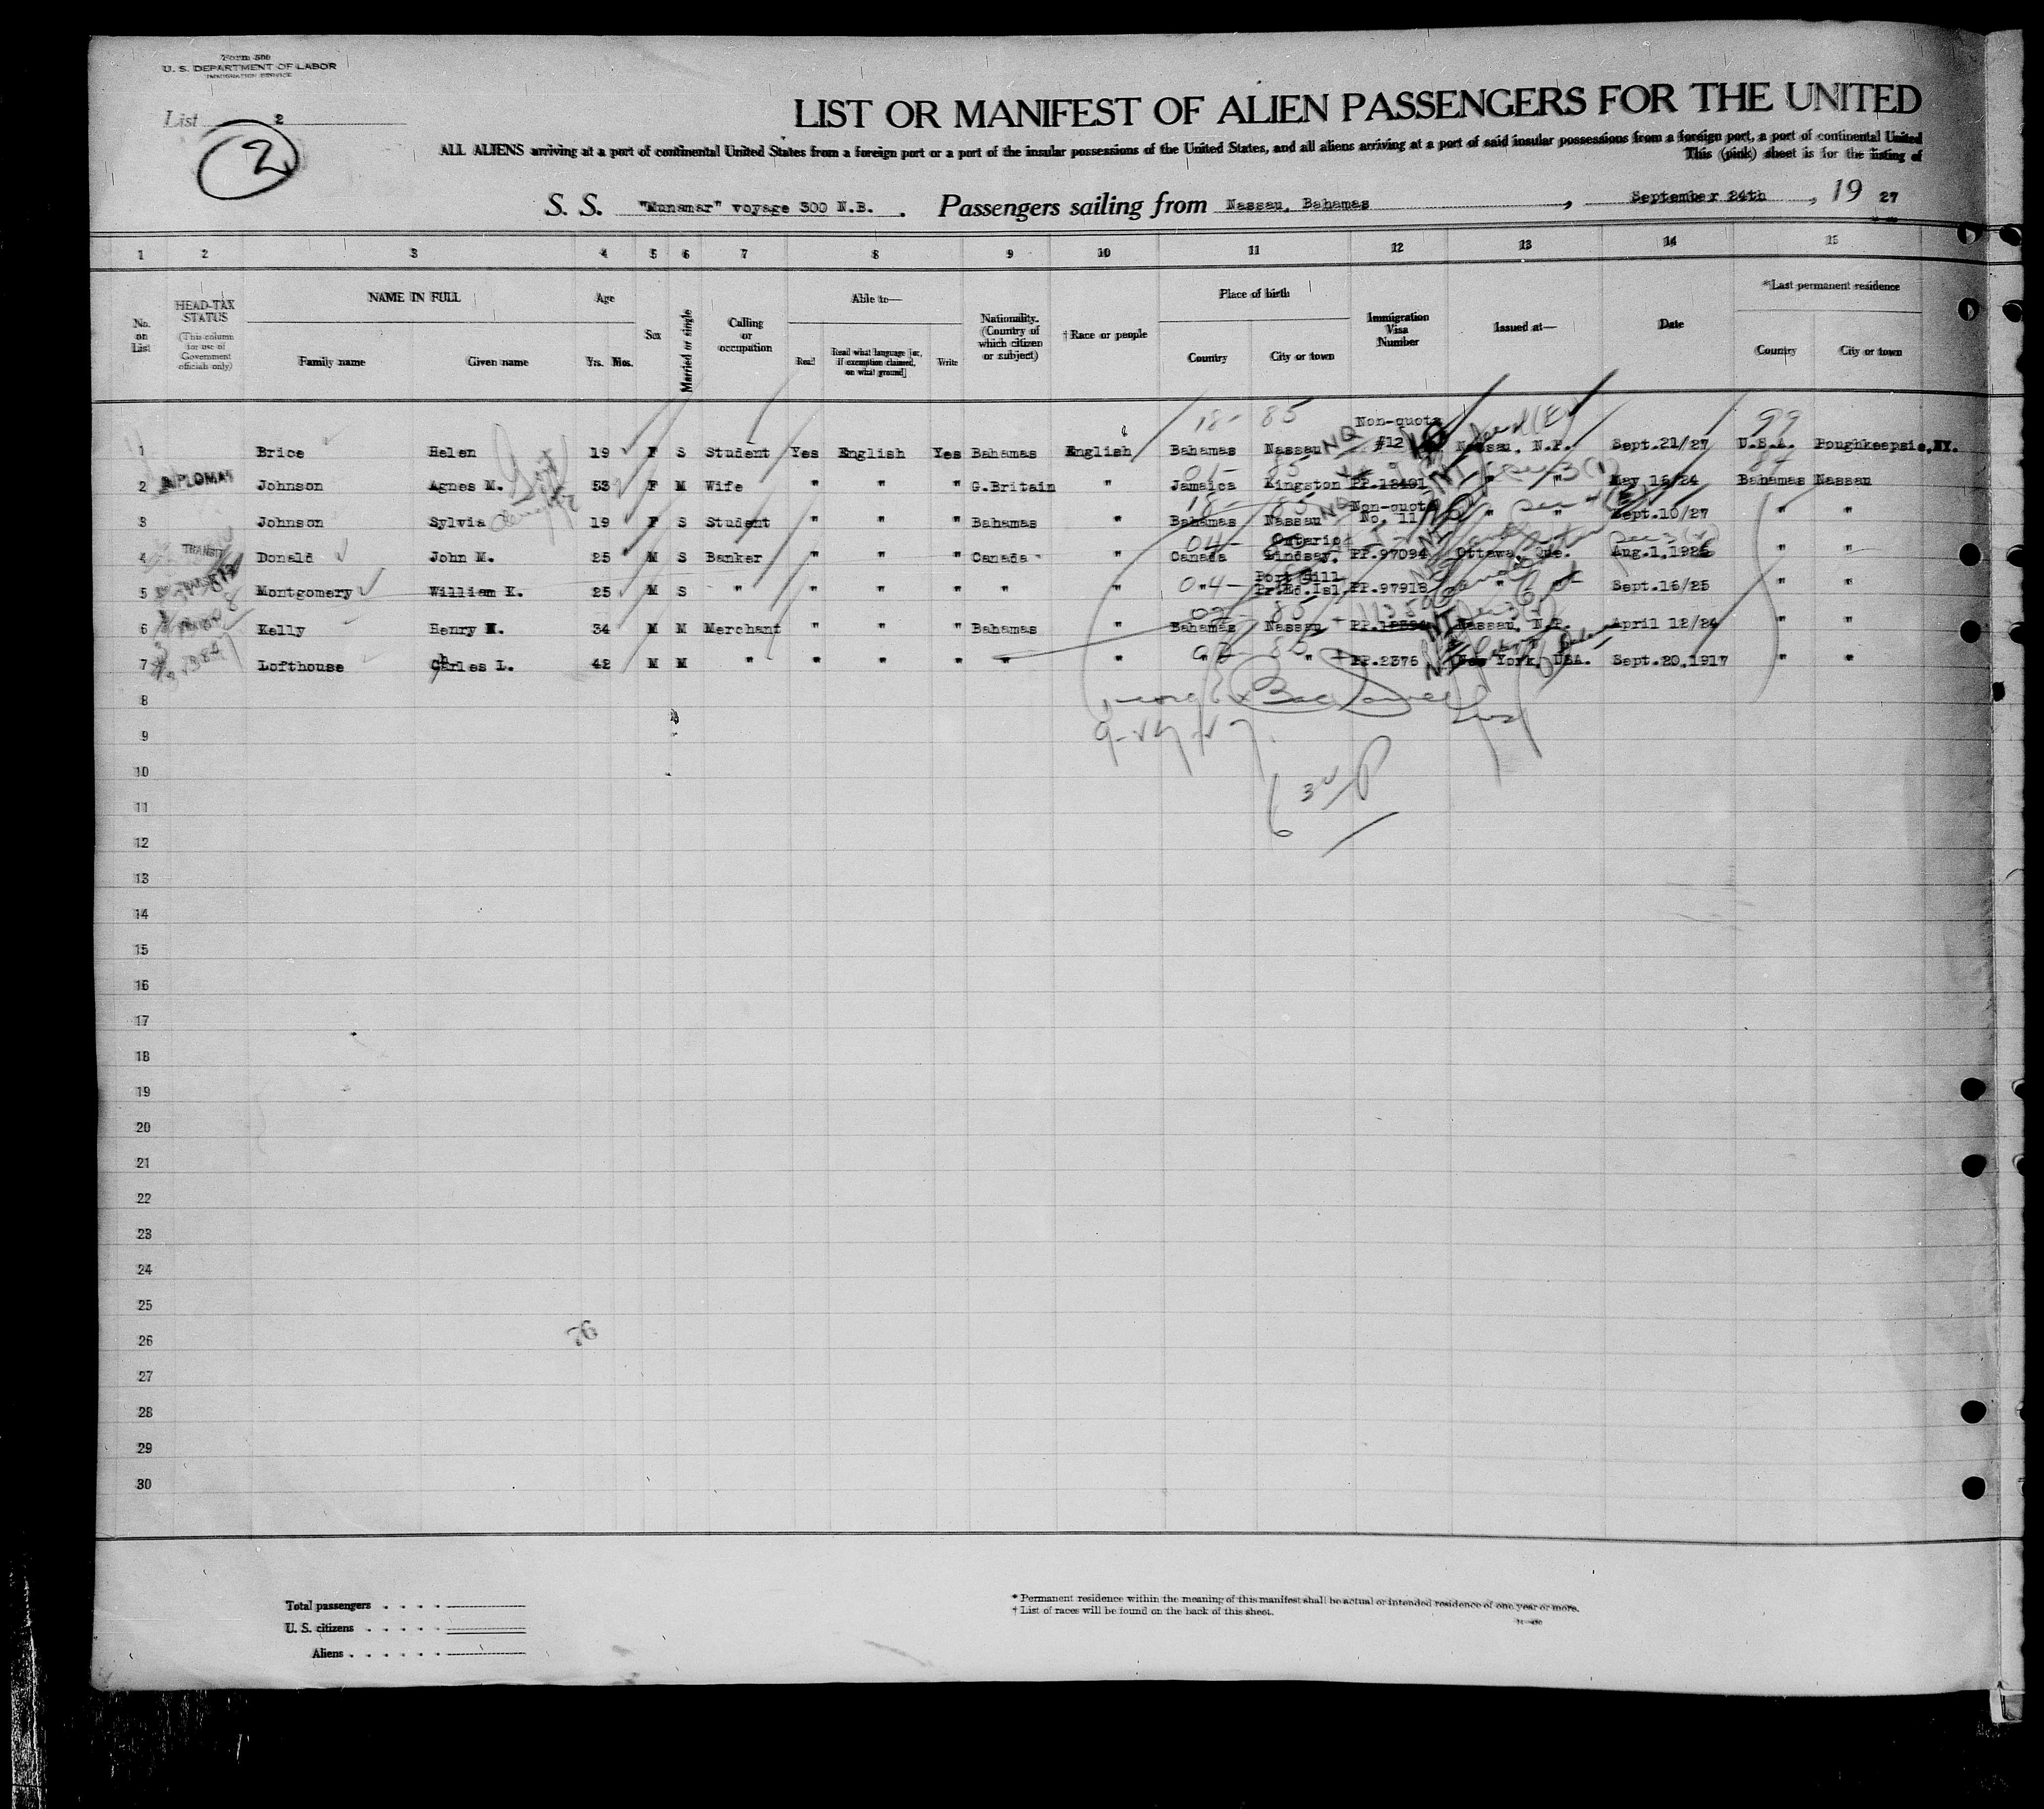 Form 500
U. S. DEPARTMENT OF LABOR
IMMIGRATION SERVICE
List 2
2
LIST OR MANIFEST OF ALIEN PASSENGERS FOR THE UNITED
ALL ALIENS arriving at a port of continental United States from a foreign port or a port of the insular possessions of the United States, and all aliens arriving at a port of said insular possessions from a foreign port, a port of continental United
This (pink) sheet is for the listing of
S. S. "Munamar" voyage 300 N.B. . Passengers sailing from Nassau, Bahamas , September 24th , 19 27
1 2 3 4 5 6 7 8 9 10 11 12 13 14 15
No. on List
HEAD-TAX STATUS (This column for use of Government officials only)
NAME IN FULL
Family name Given name
Age
Yrs. Mos.
Sex
Married or single
Calling or occupation
Able to—
Read Read what language [or, if exemption claimed, on what ground] Write
Nationality. (Country of which citizen or subject)
† Race or people
Place of birth
Country City or town
Immigration Visa Number
Issued at—
Date
*Last permanent residence
Country City or town
18- 85 Non-quota 99
1 Brice Helen 19 F S Student Yes English Yes Bahamas English Bahamas Nassau NQ #12 Nassau, N.P. Sept.21/27 U.S.A. Poughkeepsie,NY.
2 DIPLOMAT Johnson Agnes M. 53 F M Wife " " " G.Britain " Jamaica Kingston PP.12491 " " May 16/24 Bahamas Nassau
18- 85 Non-quota
3 Johnson Sylvia daughter 19 F S Student " " " Bahamas " Bahamas Nassau No. 11 " " Sept.10/27 " "
04- Ontario
4 TRANSIT Donald John M. 25 M S Banker " " " Canada " Canada Lindsay, PP.97094 Ottawa, Que. Aug.1,1925 " "
04- Port Hill
5 Montgomery William K. 25 M S " " " " " " " Pr.Ed.Isl. PP.97918 " " Sept.16/25 " "
85
6 Kelly Henry M. 34 M M Merchant " " " Bahamas " Bahamas Nassau Nassau, N.P. April 12/24 " "
85
7 Lofthouse Charles L. 42 M M " " " " " " " " PP.2376 New York, USA. Sept.20,1917 " "
8
9
10
11
12
13
14
15
16
17
18
19
20
21
22
23
24
25
26
76
27
28
29
30
Total passengers . . . .
U. S. citizens . . . . .
Aliens . . . . . .
* Permanent residence within the meaning of this manifest shall be actual or intended residence of one year or more.
† List of races will be found on the back of this sheet.